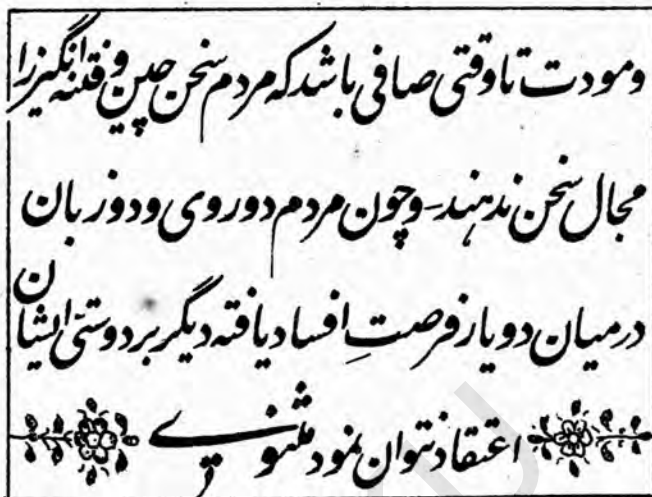 ومودت تا وقتی صافی باشد که مردم سخن چین و فتنه انگیز را
مجال سخن ندهند - و چون مردم دو روی و دو زبان
درمیان دو یار فرصتِ افساد یافته دیگر بر دوستیٔ ایشان
اعتقاد نتوان نمود مثنوی